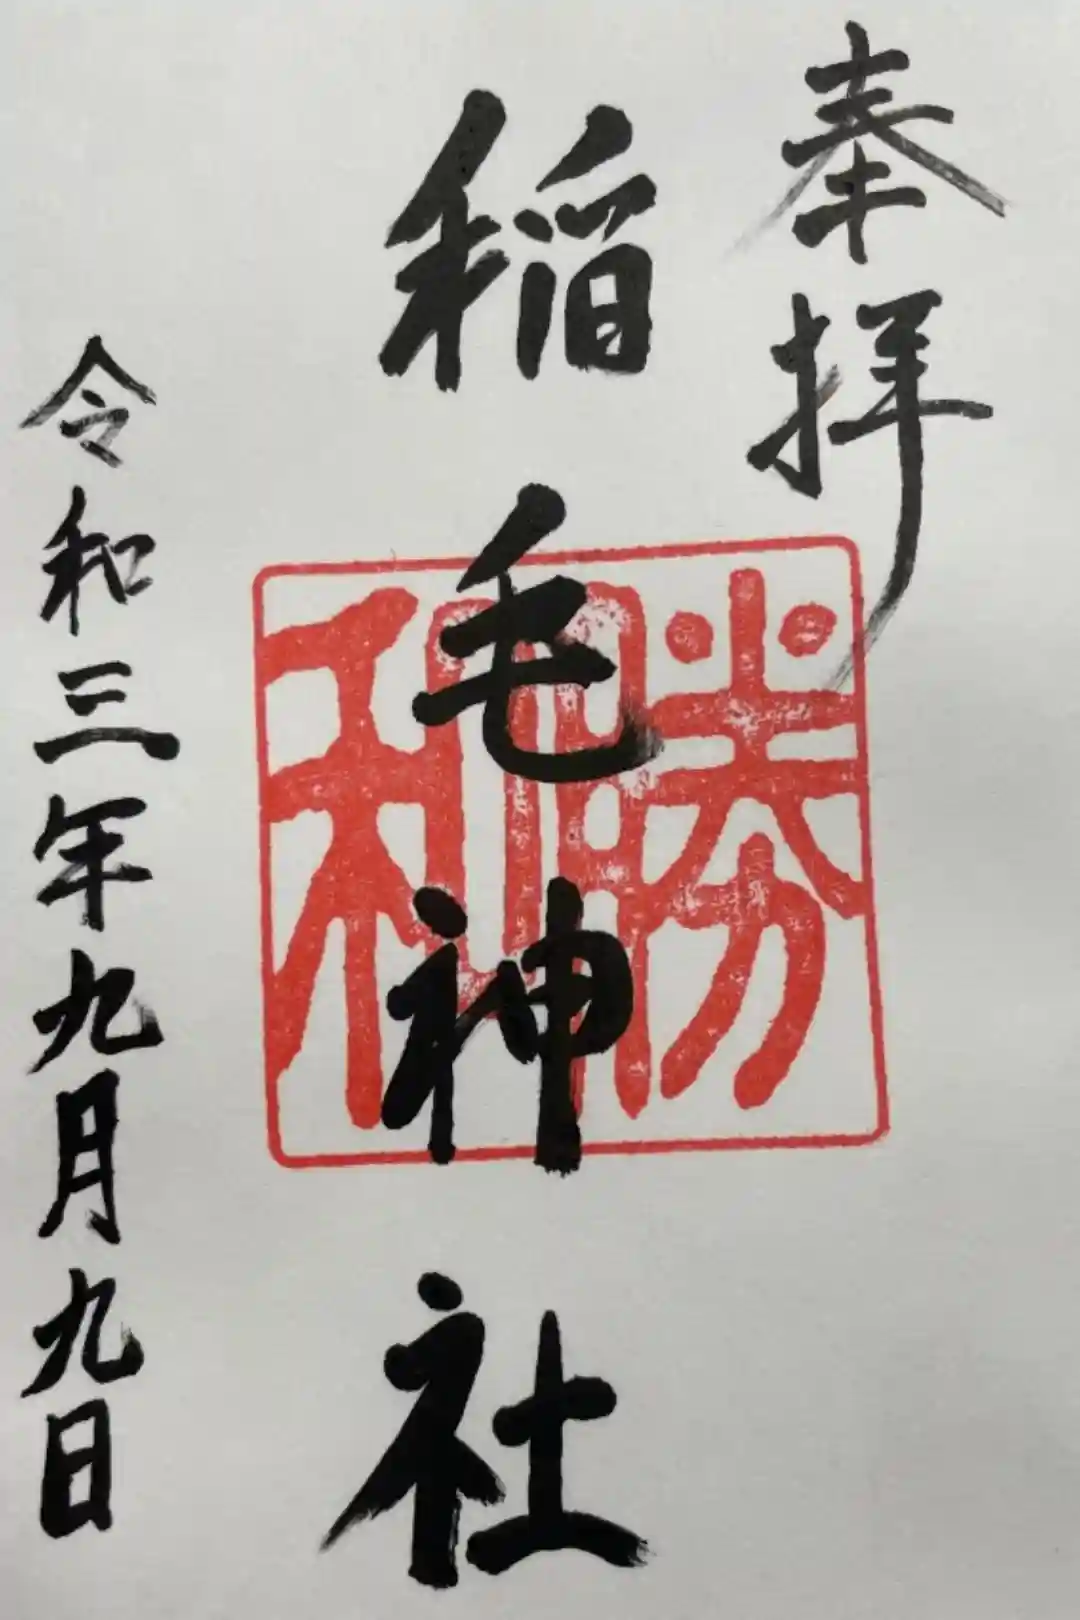 奉拝
稲毛神社
勝利
令和三年九月九日